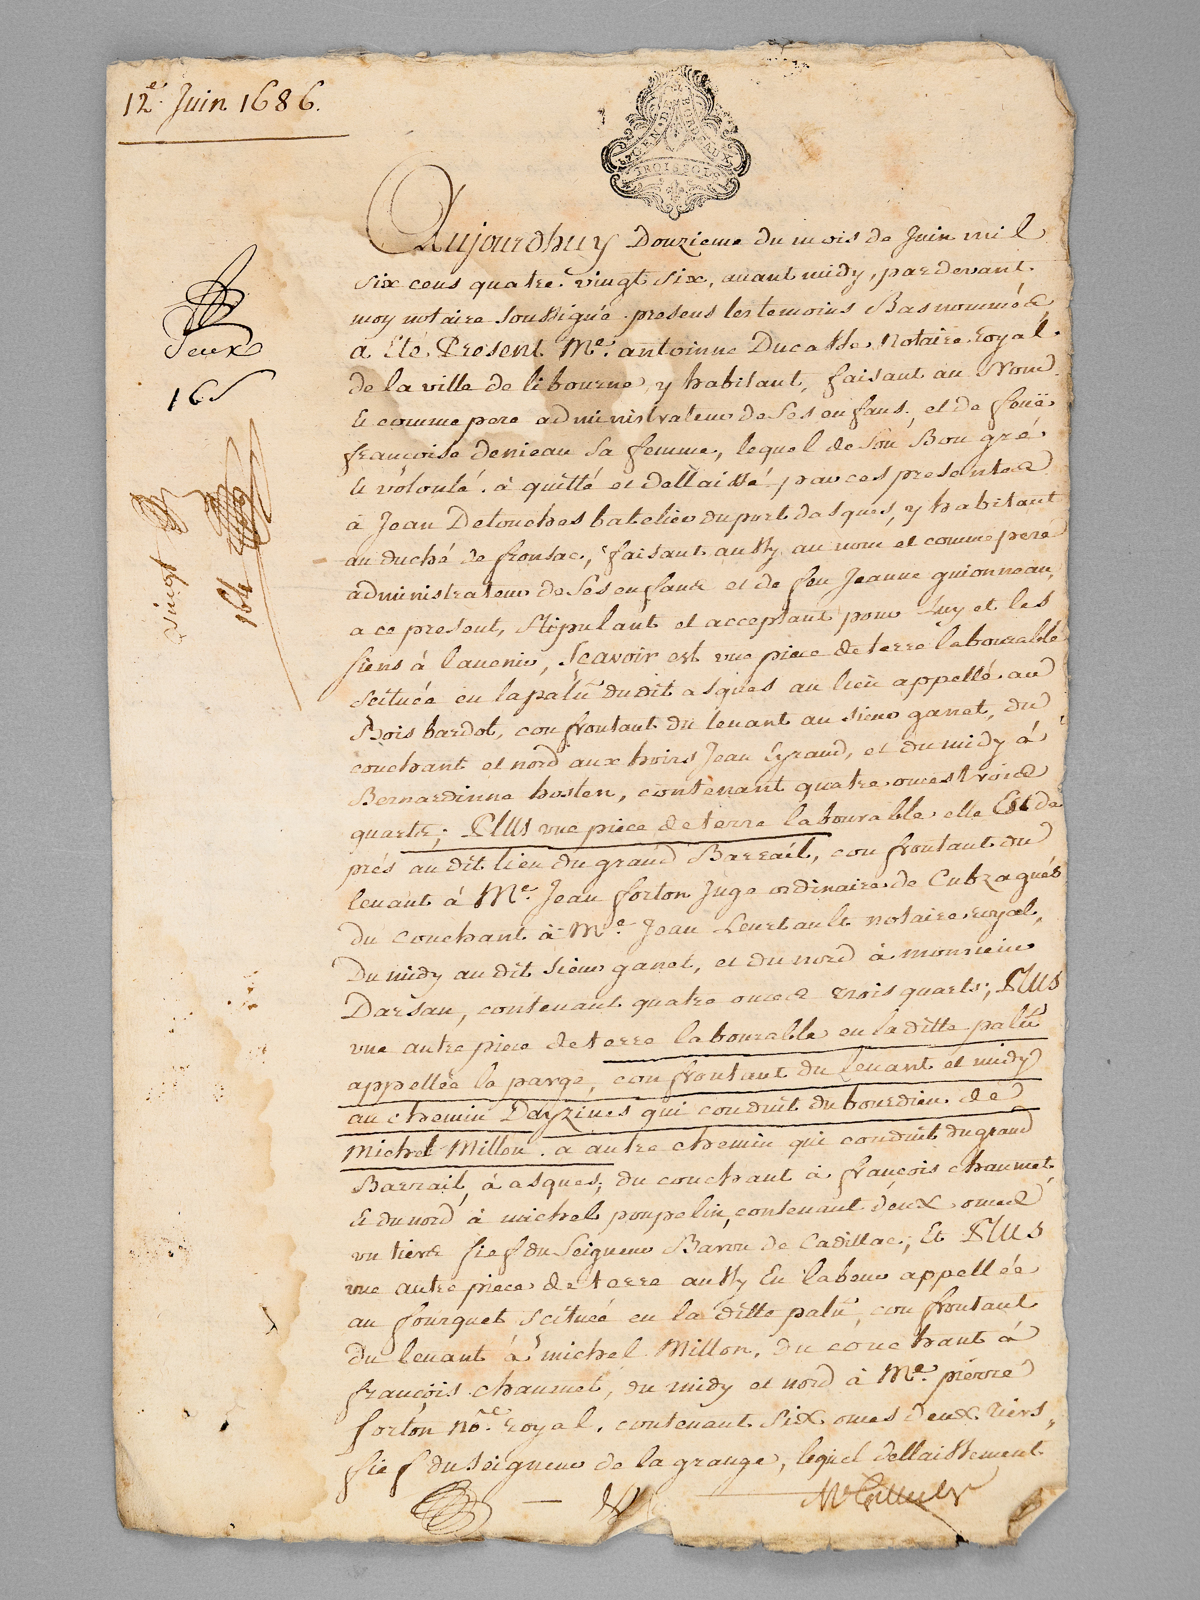 12e. Juin 1686.
GEN. DE BORDEAUX
TROIS SOLS
Aujourdhuy Douzieme du mois de Juin mil
six cens quatre vingt six, auant midy, pardevant
moy notaire soussigné presens les temoins Bas nommés
a Eté Present Me. antoinne Ducasse Notaire royal
de la ville de libourne, y habitant, faisant au Nom
& comme pere administrateur de ses enfans, et de feuë
françoise denieau sa femme, lequel de son Bon gré
& volonté à quitté et dellaissé par ces presentes
à Jean Detouches batelier du port dasques, y habitant
au duché de fronsac, faisant aussy au nom et comme pere
administrateur de ses enfans et de feu Jeanne guionneau,
a ce present, stipulant et acceptant pour luy et les
siens à l'auenir, sçavoir est vne piece de terre labourable
scituée en la palu dudit asques au lieu appellé au
Bois bardot, confrontant du leuant au sieur ganet, du
couchant et nord aux hoirs Jean Eyraud, et du midy à
Bernardinne hosten, contenant quatre omes trois
quarts; Plus vne piece de terre labourable elle Est de
près au dit lieu du grand Barrail, confrontant du
leuant à Me. Jean forton Juge ordinaire de Cubzagués
du couchant à Me. Jean notaire royal,
Du midy au dit sieur ganet, et du nord à monsieur
Darsan, contenant quatre omes trois quarts; Plus
vne autre piece de terre labourable en la ditte palu
appellée la parge, confrontant du leuant et midy
au chemin Dayzines qui conduit du bourdieu de
Michel Millon a autre chemin qui conduit du grand
Barrail, à asques; du couchant à françois chaumet,
& du nord à michel poupelin, contenant deux omes
vn tiers fief du seigneur Baron de Cadillac; Et Plus
vne autre piece de terre aussy En labour appellée
au fourquet scituée en la ditte palu, confrontant
du leuant à michel Millon, du couchant à
françois chaumet, du midy et nord à Me. pierre
forton nore. royal, contenant six omes deux tiers,
fief du seigneur de la grange, lequel dellaissement
deux
vingt